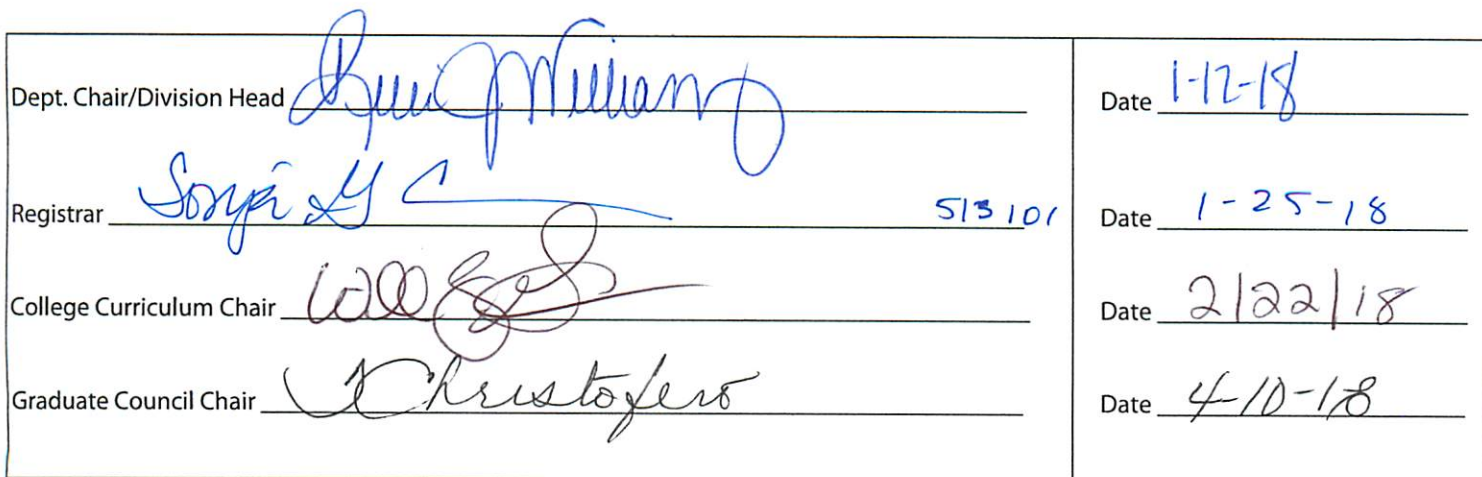 Dept. Chair/Division Head J Williams Date 1-12-18
Registrar Sonja G 513101 Date 1-25-18
College Curriculum Chair Date 2/22/18
Graduate Council Chair Christofero Date 4-10-18